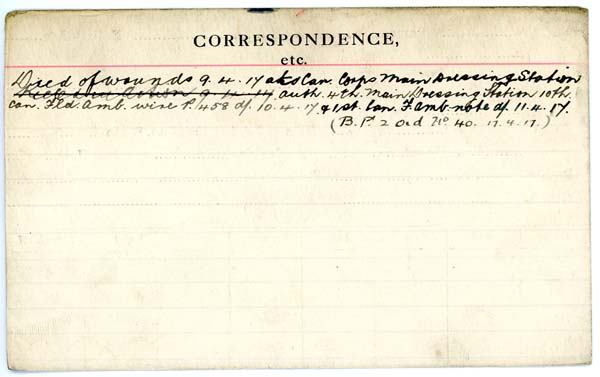 CORRESPONDENCE,
etc.
Died of wounds 9.4.17 at Can. Corps Main Dressing Station
Killed in Action 9.4.17 auth. 4th. Main Dressing Station 10th.
Can. Fld. Amb. wire P. 458 d/. 10.4.17 & 1st. Can. F. Amb. note d/. 11.4.17.
(B.P. 2 Ord No 40. 17.4.17.)